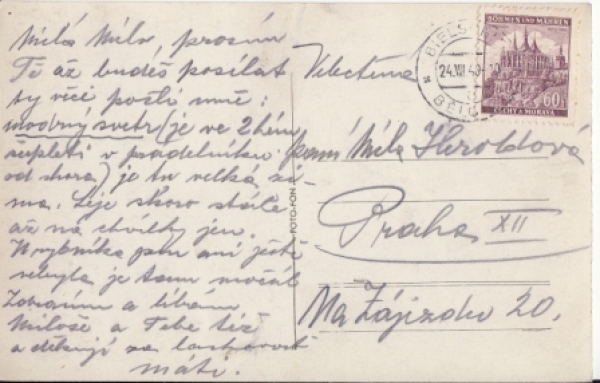 Milá Mílo, prosím
Tě až budeš posílat
ty věci pošli mně:
modrý svetr (je ve 2hém
šupleti v prádelníku
od shora) je tu velká zi-
ma. Leje skoro stále
až na chvilky jen.
U rybníka jsem ani ještě
nebyla je tam močál
Zdravím a líbám
Miloše a Tebe též
a děkuji za laskavost
máti.
FOTO-FON
BÖHMEN UND MÄHREN
60
ČECHY A MORAVA
24.VII.40
Velectěná
paní Míla Heroldová
Praha XII
Na Zájezdu 20.